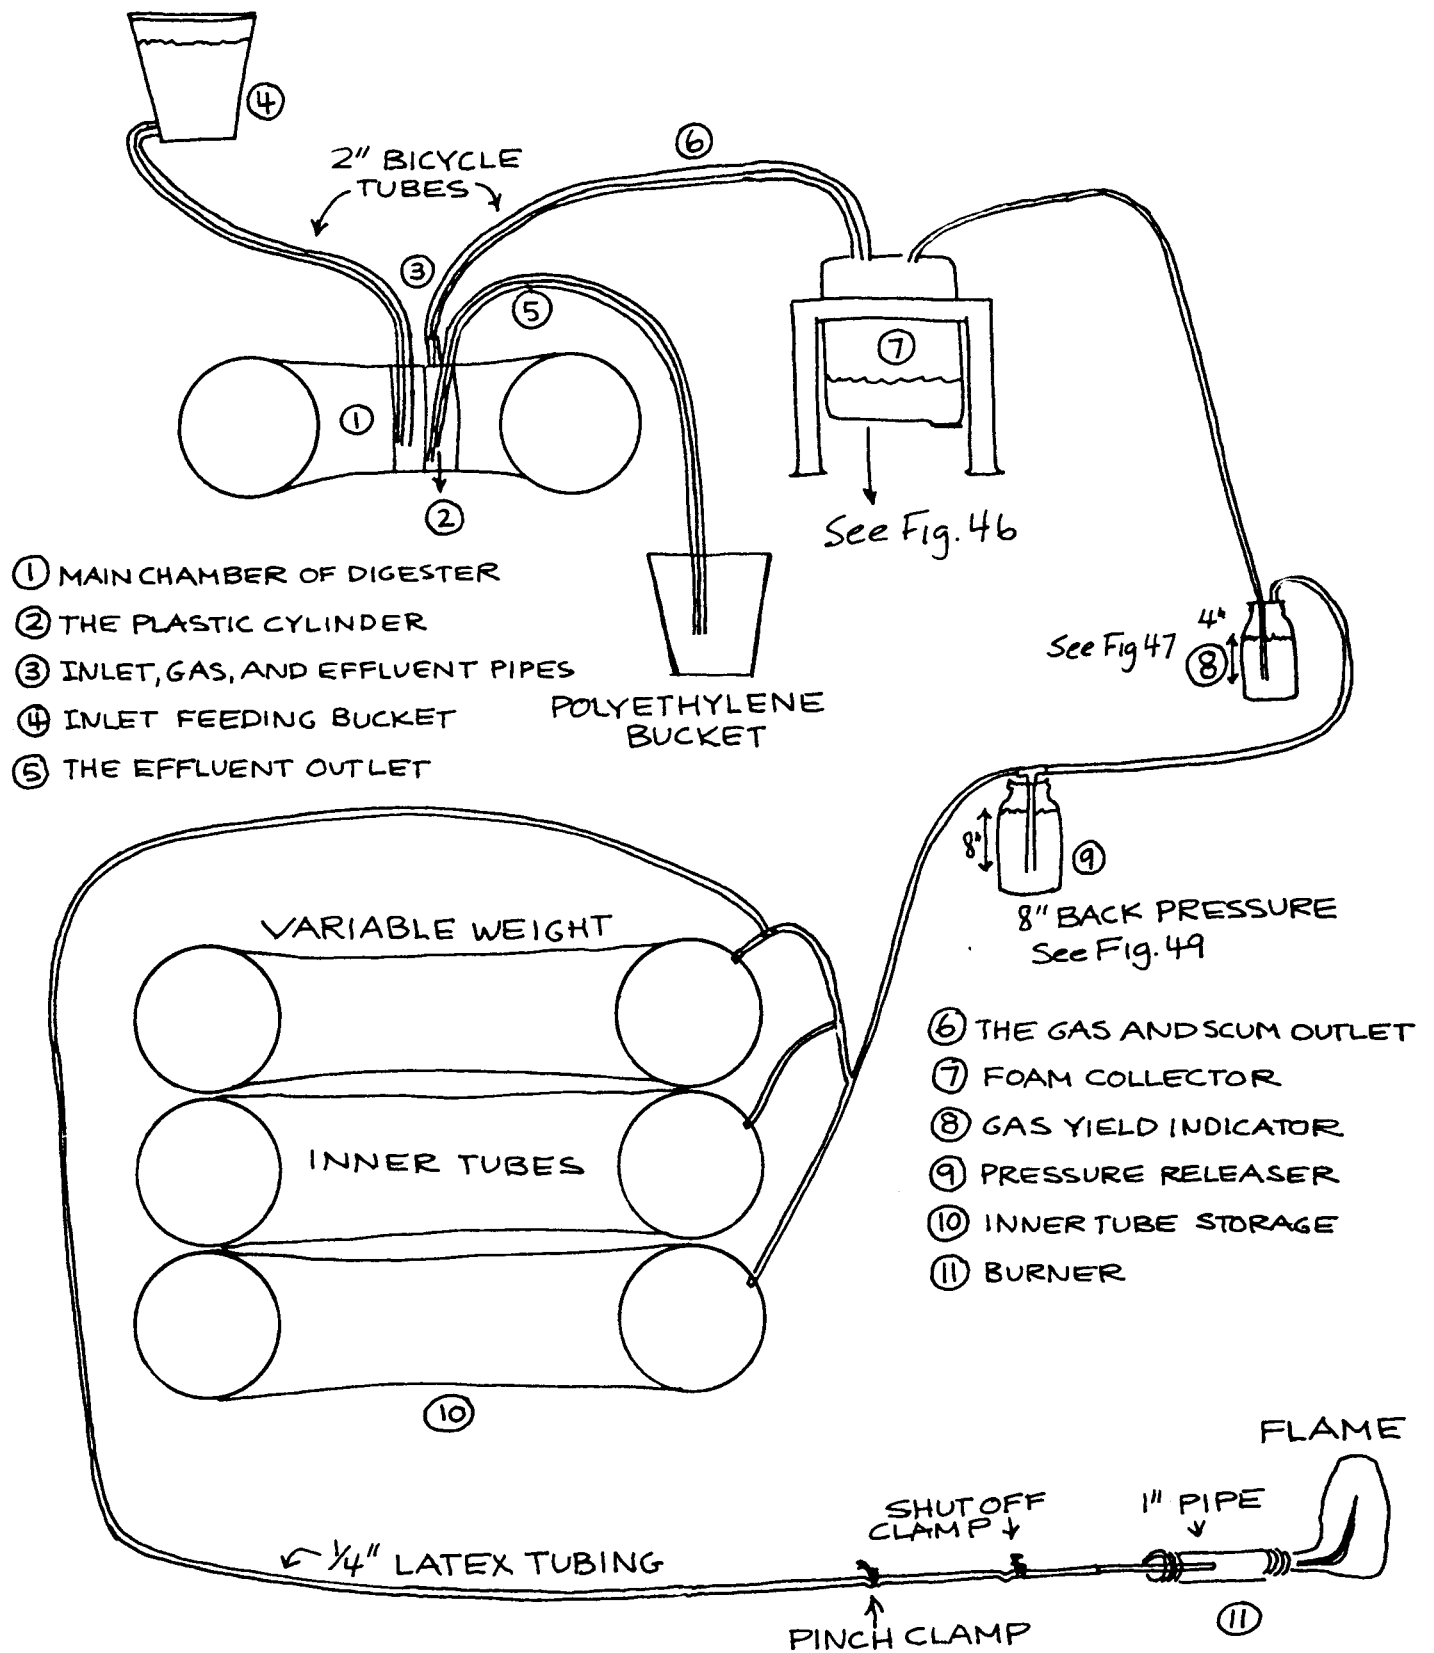 ④
2" BICYCLE
TUBES
⑥
③
⑤
①
⑦
②
See Fig. 46
① MAIN CHAMBER OF DIGESTER
② THE PLASTIC CYLINDER
③ INLET, GAS, AND EFFLUENT PIPES
④ INLET FEEDING BUCKET
⑤ THE EFFLUENT OUTLET
POLYETHYLENE
BUCKET
4"
See Fig 47 ⑧
8"
⑨
8" BACK PRESSURE
See Fig. 49
VARIABLE WEIGHT
INNER TUBES
⑩
⑥ THE GAS AND SCUM OUTLET
⑦ FOAM COLLECTOR
⑧ GAS YIELD INDICATOR
⑨ PRESSURE RELEASER
⑩ INNER TUBE STORAGE
⑪ BURNER
FLAME
SHUT OFF
CLAMP
1" PIPE
1/4" LATEX TUBING
PINCH CLAMP
⑪